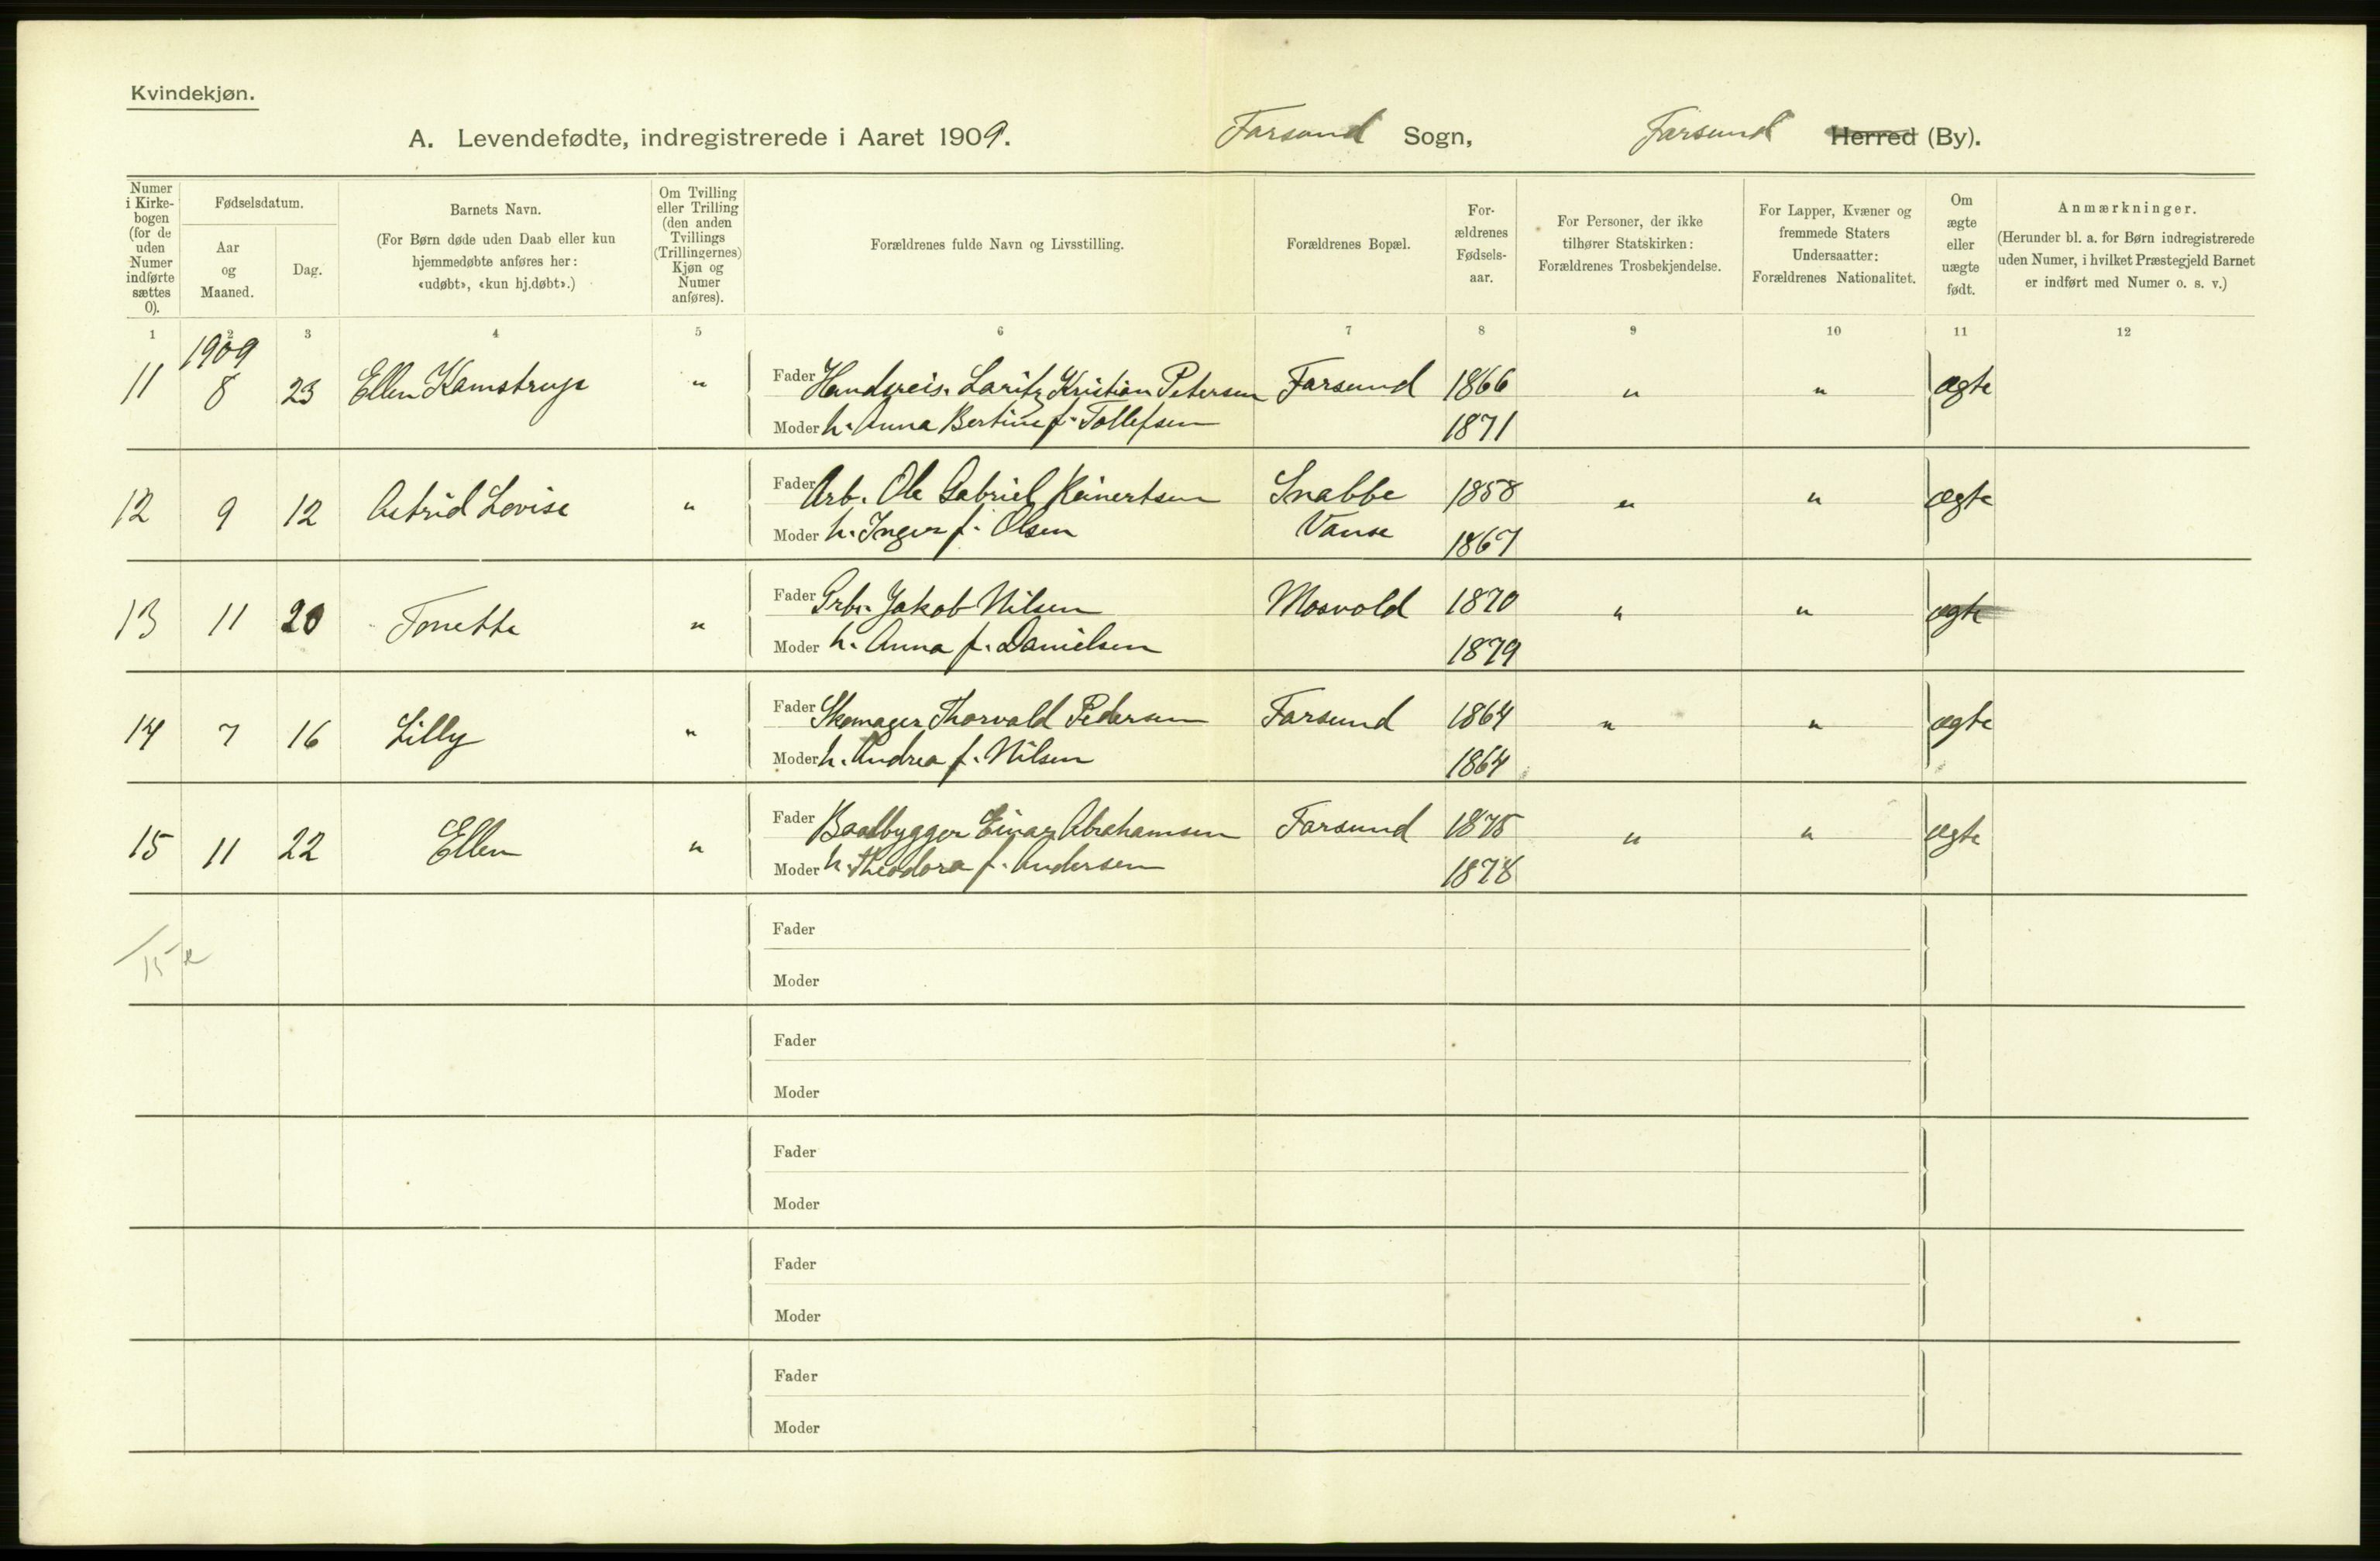 Kvindekjøn.
A. Levendefødte, indregistrerede i Aaret 1909. Farsund Sogn, Farsund Herred (By).
Numer i Kirke-bogen (for de uden Numer indførte sættes 0).
Fødselsdatum.
Aar og Maaned.
Dag.
Barnets Navn.
(For Børn døde uden Daab eller kun
hjemmedøbte anføres her:
«udøbt», «kun hj.døbt».)
Om Tvilling
eller Trilling
(den anden
Tvillings
(Trillingernes)
Kjøn og
Numer
anføres).
Forældrenes fulde Navn og Livsstilling.
Forældrenes Bopæl.
For-
ældrenes
Fødsels-
aar.
For Personer, der ikke
tilhører Statskirken:
Forældrenes Trosbekjendelse.
For Lapper, Kvæner og
fremmede Staters
Undersaatter:
Forældrenes Nationalitet.
Om
ægte
eller
uægte
født.
Anmærkninger.
(Herunder bl. a. for Børn indregistrerede
uden Numer, i hvilket Præstegjeld Barnet
er indført med Numer o. s. v.)
1 2 3 4 5 6 7 8 9 10 11 12
1909
11 8 23 Ellen Kamstrup " Fader Handsreis. Laritz Kristian Petersen Farsund 1866 " " ægte
Moder h. Anna Bertine f. Tollefsen 1871
12 9 12 Astrid Lovise " Fader Arb. Ole Gabriel Reinertsen Snabbe 1858 " " ægte
Moder h. Inger f. Olsen Vanse 1867
13 11 20 Tonette " Fader Grbr. Jakob Nilsen Mosvold 1870 " " ægte
Moder h. Anna f. Danielsen 1879
14 7 16 Lilly " Fader Skomager Thorvald Pedersen Farsund 1864 " " ægte
Moder h. Andrea f. Nilsen 1864
15 11 22 Ellen " Fader Baadbygger Einar Abrahamsen Farsund 1875 " " ægte
Moder h. Theodora f. Andersen 1878
Fader
15
Moder
Fader
Moder
Fader
Moder
Fader
Moder
Fader
Moder